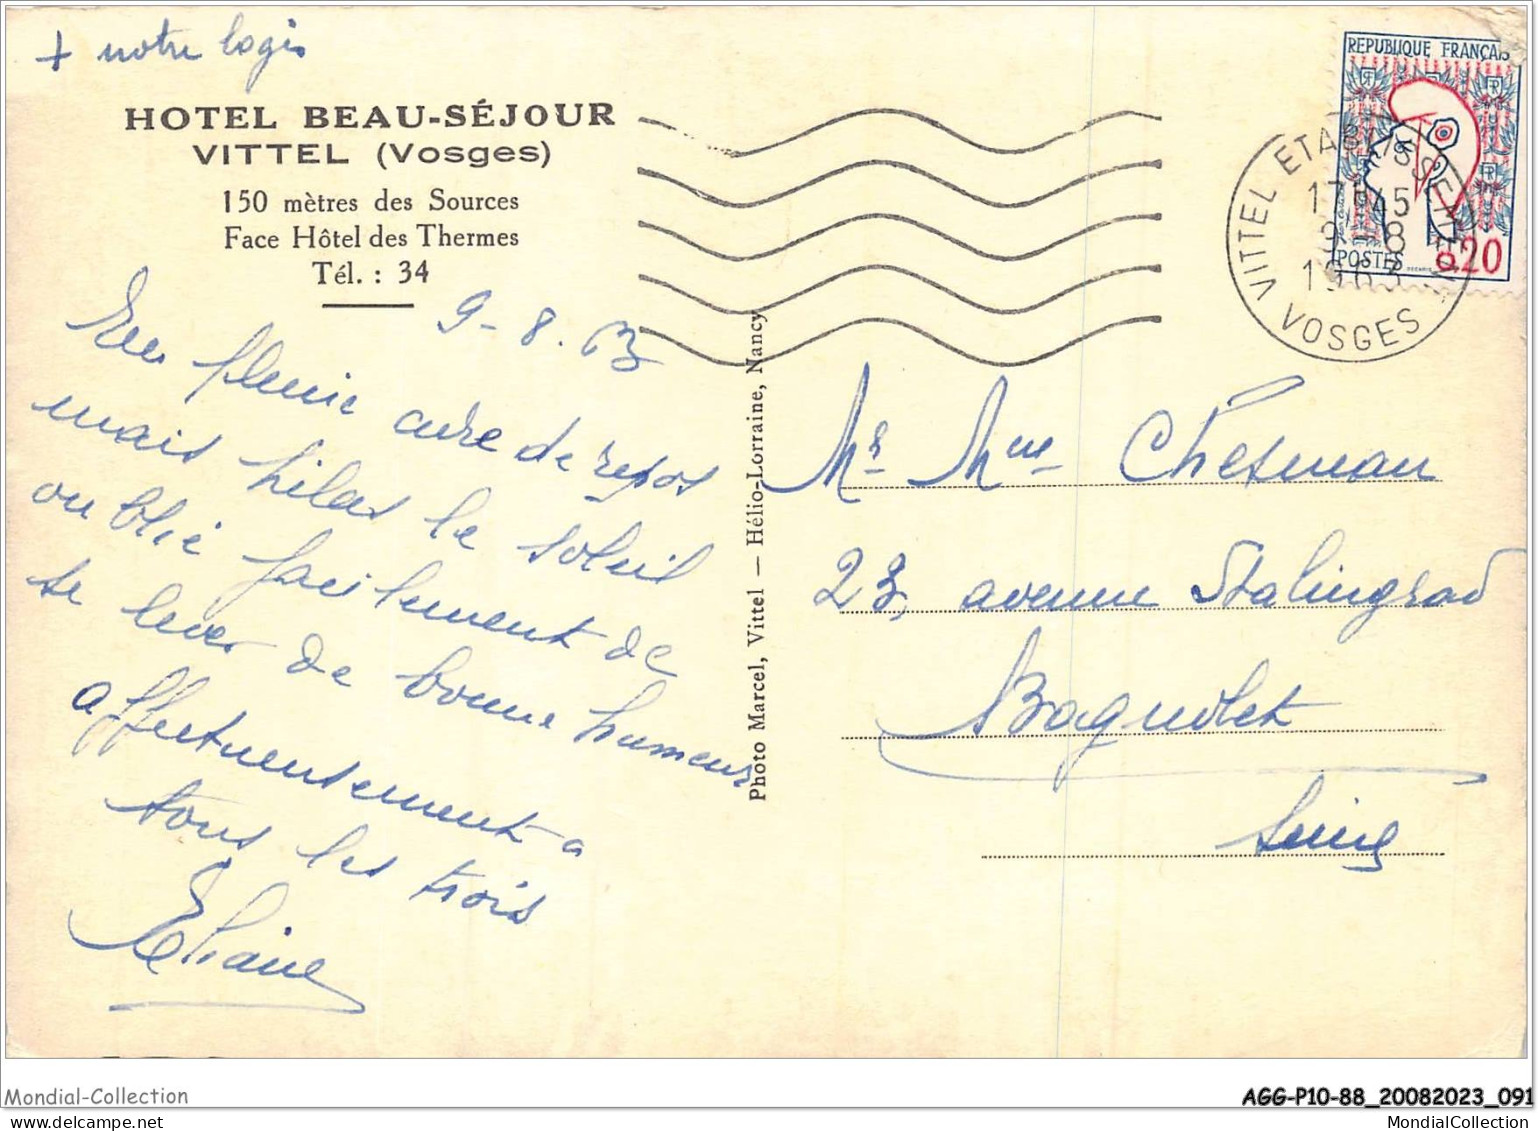 + notre logis
HOTEL BEAU-SÉJOUR
VITTEL (Vosges)
150 mètres des Sources
Face Hôtel des Thermes
Tél. : 34
9-8.63
En pleine cure de repos
mais hélas le soleil
oublie facilement de
se lever de bonne humeur
affectueusement a
tous les trois
Eliane
Photo Marcel, Vittel — Hélio-Lorraine, Nancy
REPUBLIQUE FRANÇAISE
POSTES
0,20
VITTEL ETABLISSEMENT
17H45
9-8
1963
VOSGES
Mr Mme Chesneau
23, avenue Stalingrad
Bagnolet
Seine
Mondial-Collection
AGG-P10-88_20082023_091
MondialCollection